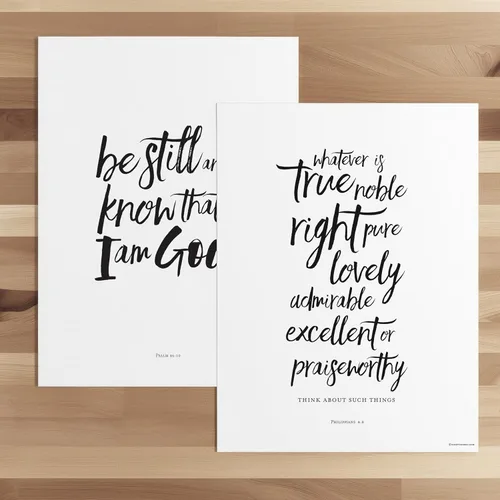 be still an
know that
I am God
PSALM 46:10
whatever is
true noble
right pure
lovely
admirable
excellent or
praiseworthy
THINK ABOUT SUCH THINGS
PHILIPPIANS 4:8